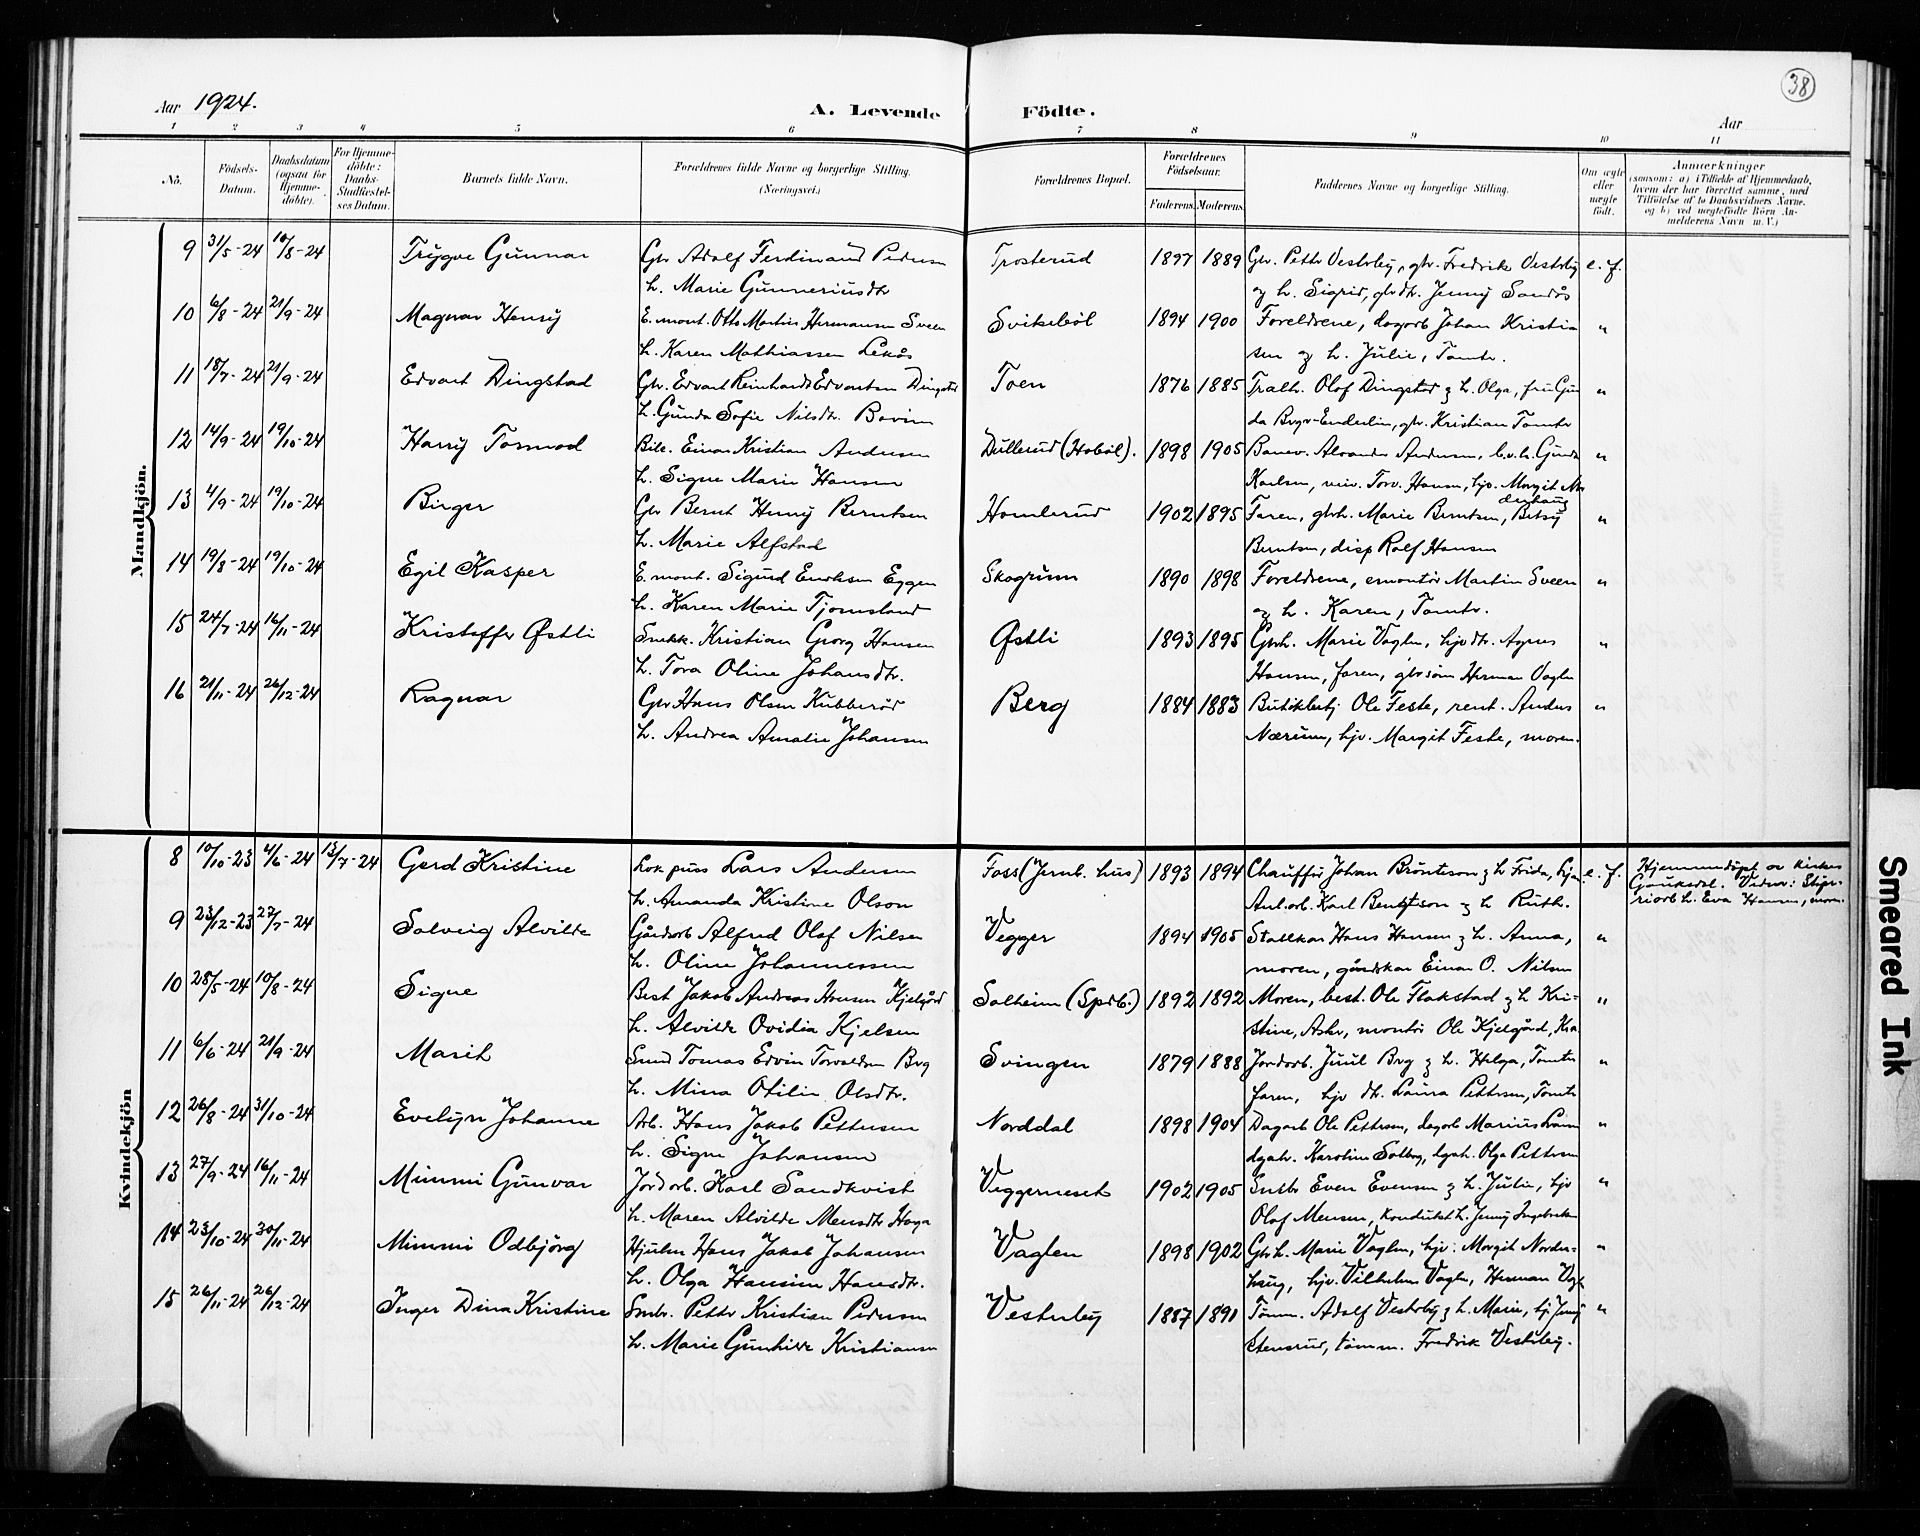 38
Aar 1924.
A. Levende Födte.
Aar
1 2 3 4 5 6 7 8 9 10 11
No.
Födsels-Datum.
Daabsdatum (ogsaa for Hjemme-döbte).
For Hjemme-döbte: Daabs-Stadfæstel-ses Datum.
Barnets fulde Navn.
Forældrenes fulde Navne og borgerlige Stilling. (Næringsvei.)
Forældrenes Bopæl.
Forældrenes Födselsaar.
Faderens. Moderens.
Faddernes Navne og borgerlige Stilling.
Om ægte eller uægte födt.
Anmærkninger
(saasom: a) i Tilfælde af Hjemmedaab, hvem der har forrettet samme, med Tilföielse af to Daabsvidners Navne. og b) ved uægtefödte Börn An-melderens Navn m. V.)
Mandkjön.
9 31/5-24 10/8-24 Trygve Gunnar Gbr Adolf Ferdinand Pedersen Trosterud 1897 1889 Gbr. Petter Vestby, gbr. Fredrik Vestby e. f.
h. Marie Gunneriusdtr og h. Sigrid, gbrdtr. Jenny Sandås
10 6/8-24 21/9-24 Magnar Henry E. mont. Otto Martin Hermansen Sveen Svikebøl 1894 1900 Foreldrene, dagarb Johan Kristia "
h. Karen Mathiassen Lekås sen og h. Julie, Tomter.
11 18/7-24 21/9-24 Edvart Dingstad Gbr. Edvart Reinhardt Edvartsen Dingstad Toen 1876 1885 Tralh. Olof Dingstad og h. Olga, fru Gun "
h. Gunda Sofie Nilsdtr. Bovim da Berger-Enderlin, gbr. Kristian Tomter
12 14/9-24 19/10-24 Harry Tormod Einar Kristian Andersen Dullerud (Hobøl). 1898 1905 Andersen, Gunda "
h. Signe Marie Hansen Karlsen, Hansen, hjv. Margit No
13 4/9-24 19/10-24 Birger Gbr Bernt Henry Berntsen Homlerud 1902 1895 Faren, gbrh. Marie Berntsen, Betsy "
derhaug
h. Marie Alfstad Berntsen, disp Rolf Hansen
14 19/8-24 19/10-24 Egil Kasper E. mont. Sigurd Enoksen Eggen Skogrum 1890 1898 Foreldrene, emontör Martin Sveen "
h. Karen Marie Tjomsland og h. Karen, Tomter.
15 24/7-24 16/11-24 Kristoffer Østli Snekk. Kristian Georg Hansen Østli 1893 1895 Gbrh. Marie Vaglen, hjv dtr. Agnes "
h. Tora Oline Johansdtr. Hansen, faren, gbrsøn Herman Vaglen
16 21/11-24 26/12-24 Ragnar Gbr Hans Olsen Kubberød Berg 1884 1883 Ole Feste, rent. Anders "
h. Andrea Amalie Johansen Nærum, hjv. Margit Feste, moren.
Kvindekjön
8 10/10-23 4/6-24 13/7-24 Gerd Kristine Lok puss Lars Andersen Foss (Jernb. hus) 1893 1894 Chauffør Johan Brönteson og h Frida, e. f. Hjemmedøpt av
h. Amanda Kristine Olson Anl.arb. Karl Bengtson og h Ruth. h. Eva Hansen, moren.
9 23/12-23 27/7-24 Solveig Alvilde Gårdarb Alfred Olaf Nilsen Vegger 1894 1905 Stallkar Hans Hansen og h. Anna, "
h. Oline Johannessen moren, gårdskar Einar O. Nilsen
10 28/5-24 10/8-24 Signe Best Jakob Andreas Hansen Kjelgård Solheim (Spdb.) 1892 1892 Moren, best. Ole Flakstad og h Kri- "
h. Alvilde Ovidia Kjelsen stine, Asker, montör Ole Kjelgård, Kra
11 6/6-24 21/9-24 Marit Smed Tomas Edvin Torvaldsen Berg Svingen 1879 1888 Jordarb. Juul Berg og h. Helga, Tomter "
h. Mina Otilie Olsdtr. faren, hjv dtr. Laura Pettersen, Tomter
12 26/8-24 31/10-24 Evelyn Johanne Arb. Hans Jakob Pettersen Norddal 1898 1904 Dagarb Ole Pettersen, dagarb Marius "
h. Signe Johansen Karoline Solberg, Olga Pettersen
13 27/9-24 16/11-24 Mimmi Gunvor Jordarb. Karl Sandkvist Veggerneset 1902 1905 Even Evensen og h. Julie, hjv "
h. Maren Alvilde Mensdtr Haga Olaf Mensen, konduktörh. Jenny Ingebretsen
14 23/10-24 30/11-24 Mimmi Odbjörg Hjulm Hans Jakob Johansen Vaglen 1898 1902 Gbrh. Marie Vaglen, hjv. Margit Norder- "
h. Olga Hansine Hansdtr. haug, hjv. Vilhelm Vaglen, Herman Vagl
15 26/11-24 26/12-24 Inger Dina Kristine Smbr. Petter Kristian Pedersen Vesterby 1887 1891 Tømm. Adolf Vesterby og h. Marie, hjv Jenny "
h. Marie Gunhilde Kristiansen Stensrud, tømm. Fredrik Vesterby.
Smeared Ink